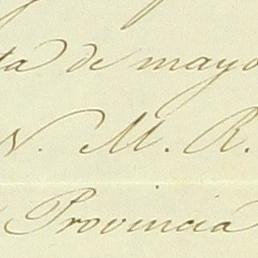 ta de mayo
N. M. R.
Provincia